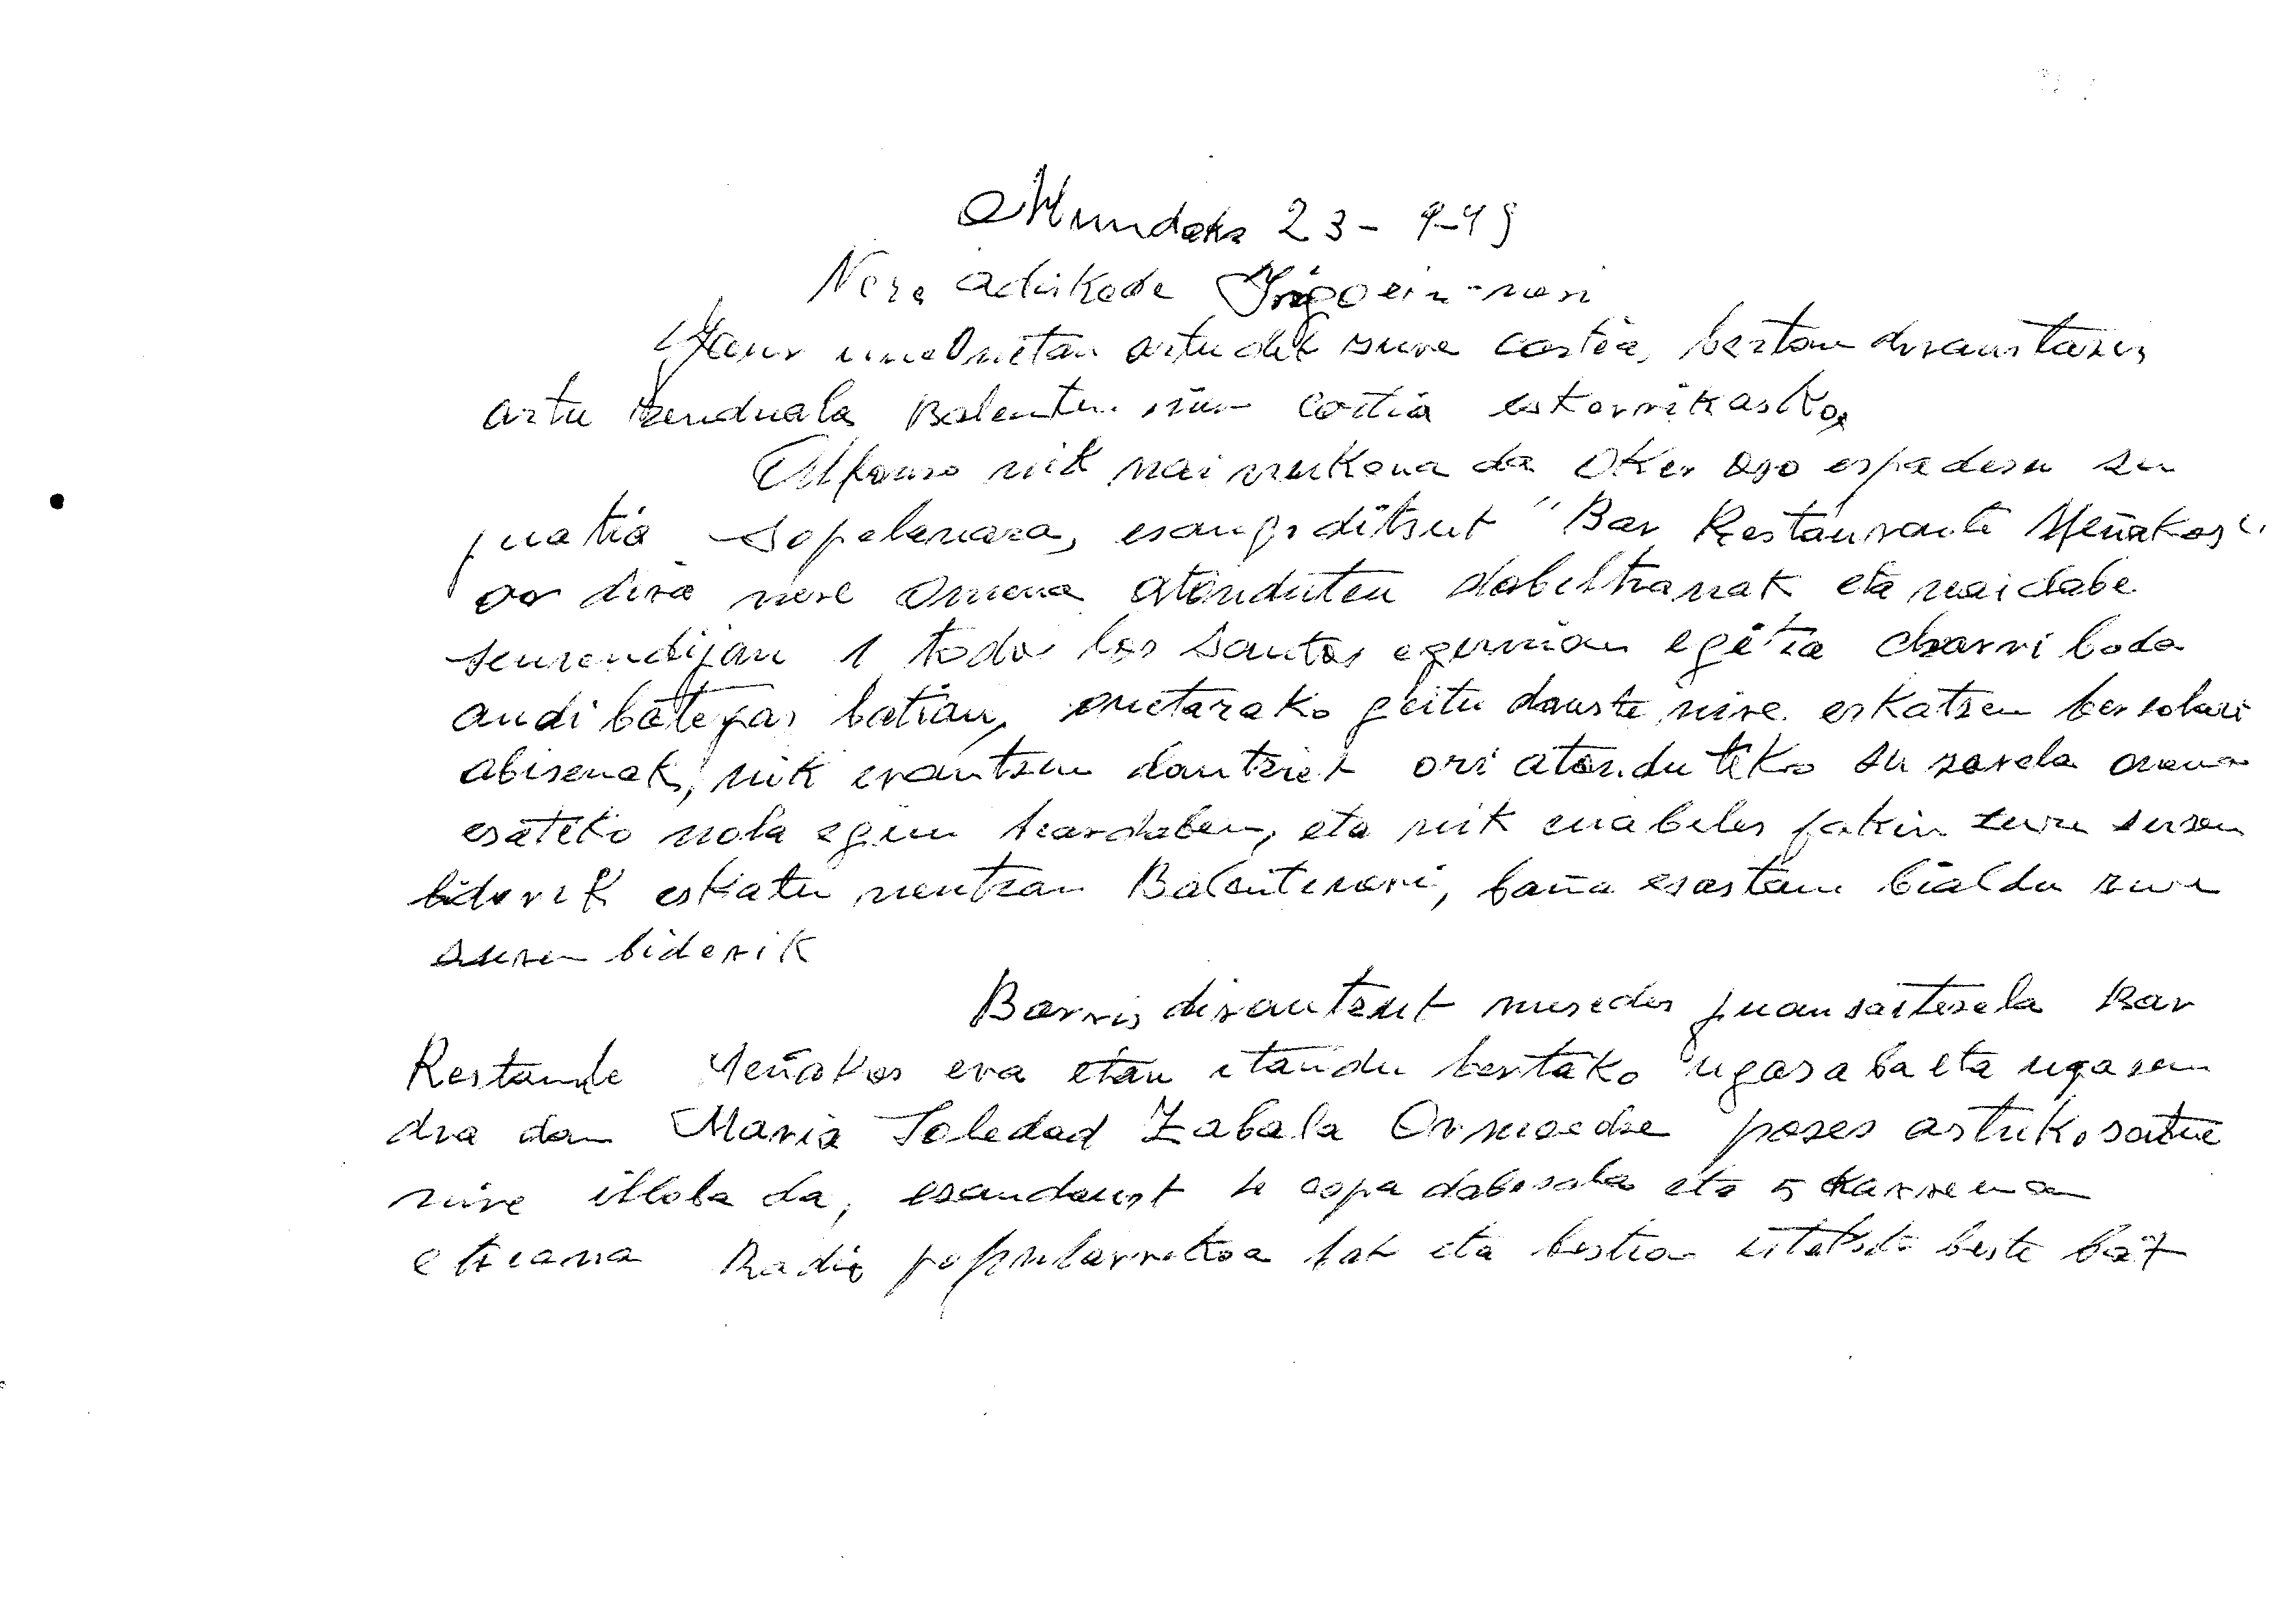 Mundaka 23-9-79
Nere adiskide Irigoien-neri
Gaur unebnetan artu dot zure cartia, bertan dirauztazu
artu zenduala Balentin cartia eskarrikasko
Alfonso nik nai neukena da oker oso espadezu zu
juatia Sopelanara, esangoditzut "Bar Restaurante Meñakoz"
or dira nere omena atonduten dabeltzanak eta naidabe
seurendijan 1 todos los Santos egunian egitia charri boda
andi bategas batian, onetarako geitu dauste nire eskatzen bersolari
abisenak, nik erantzun dautziet ori atonduteko zu zarela onena
esateko nola egin beardaben, eta nik enabelez jakin zure zuzen
biderik eskatu neutzan Balentineri, baña esastan bialdu zure
zuzen biderik
Barriz dirautzut mesedez juan zaitezela Bar
Restaurante Meñakos era etan itandu bertako ugasaba eta ugasan
dra dan Maria Soledad Zabala Ormaeche pozez artuko zaitue
nire illoba da, esandaust 4 copa dabesala eta 5 karreman
etzeana Radio popularrekoa bat eta bestia beste bat